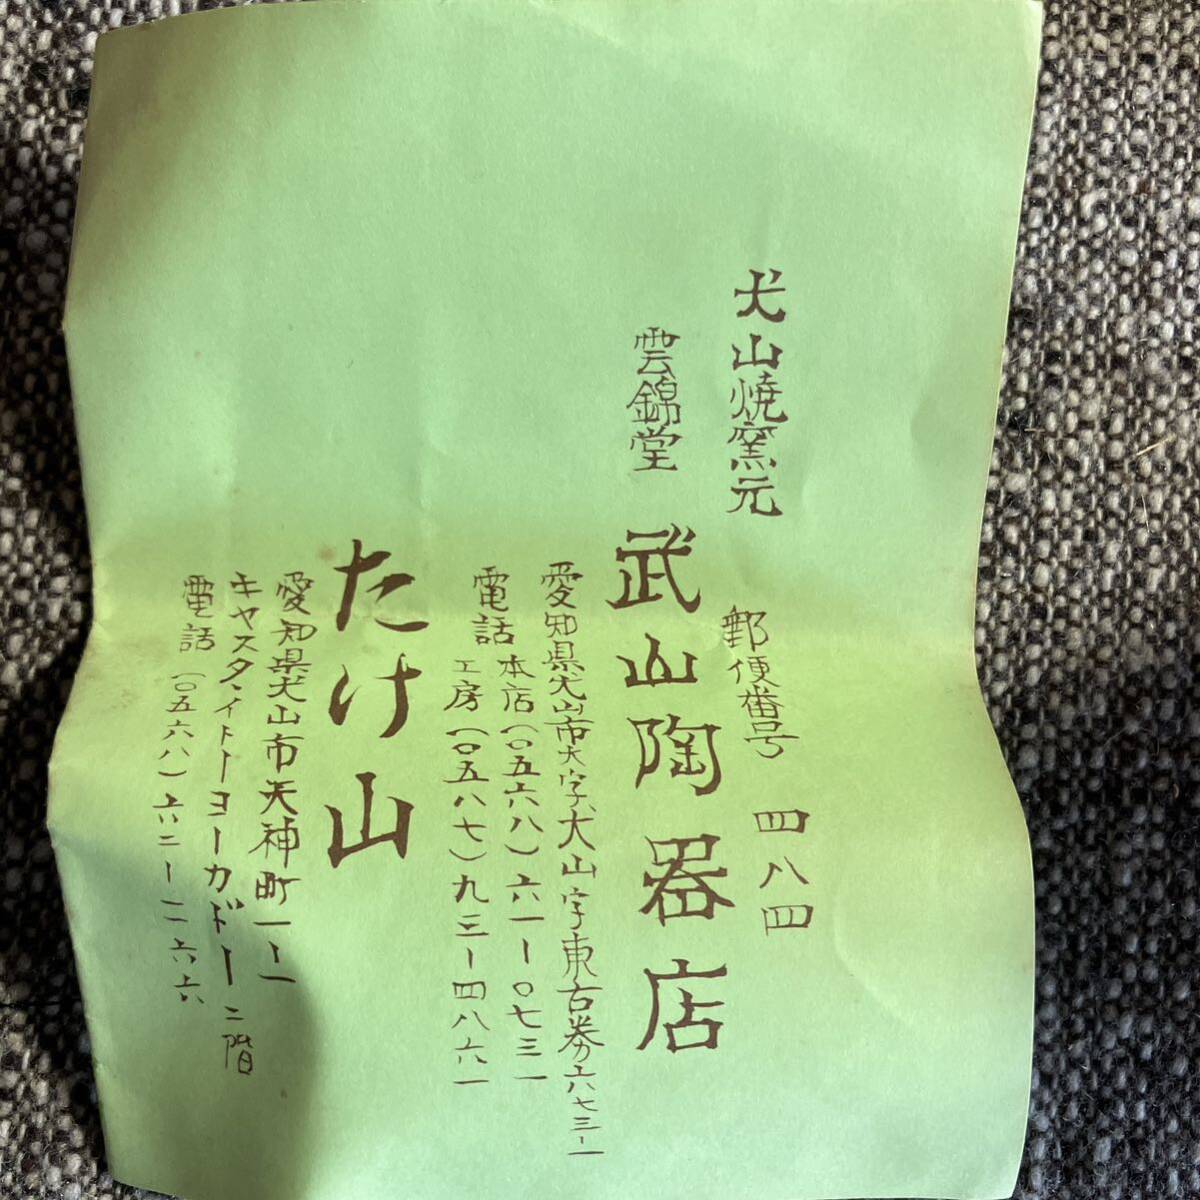 犬山焼窯元
郵便番号 四八四
雲錦堂 武山陶器店
愛知県犬山市大字犬山字東古券六七三ー一
電話 本店(〇五六八)六一ー〇七三一
工房(〇五八七)九三ー四八六一
たけ山
愛知県犬山市天神町一ー一
キャスタイトーヨーカドー二階
電話(〇五六八)六二ー一一六六